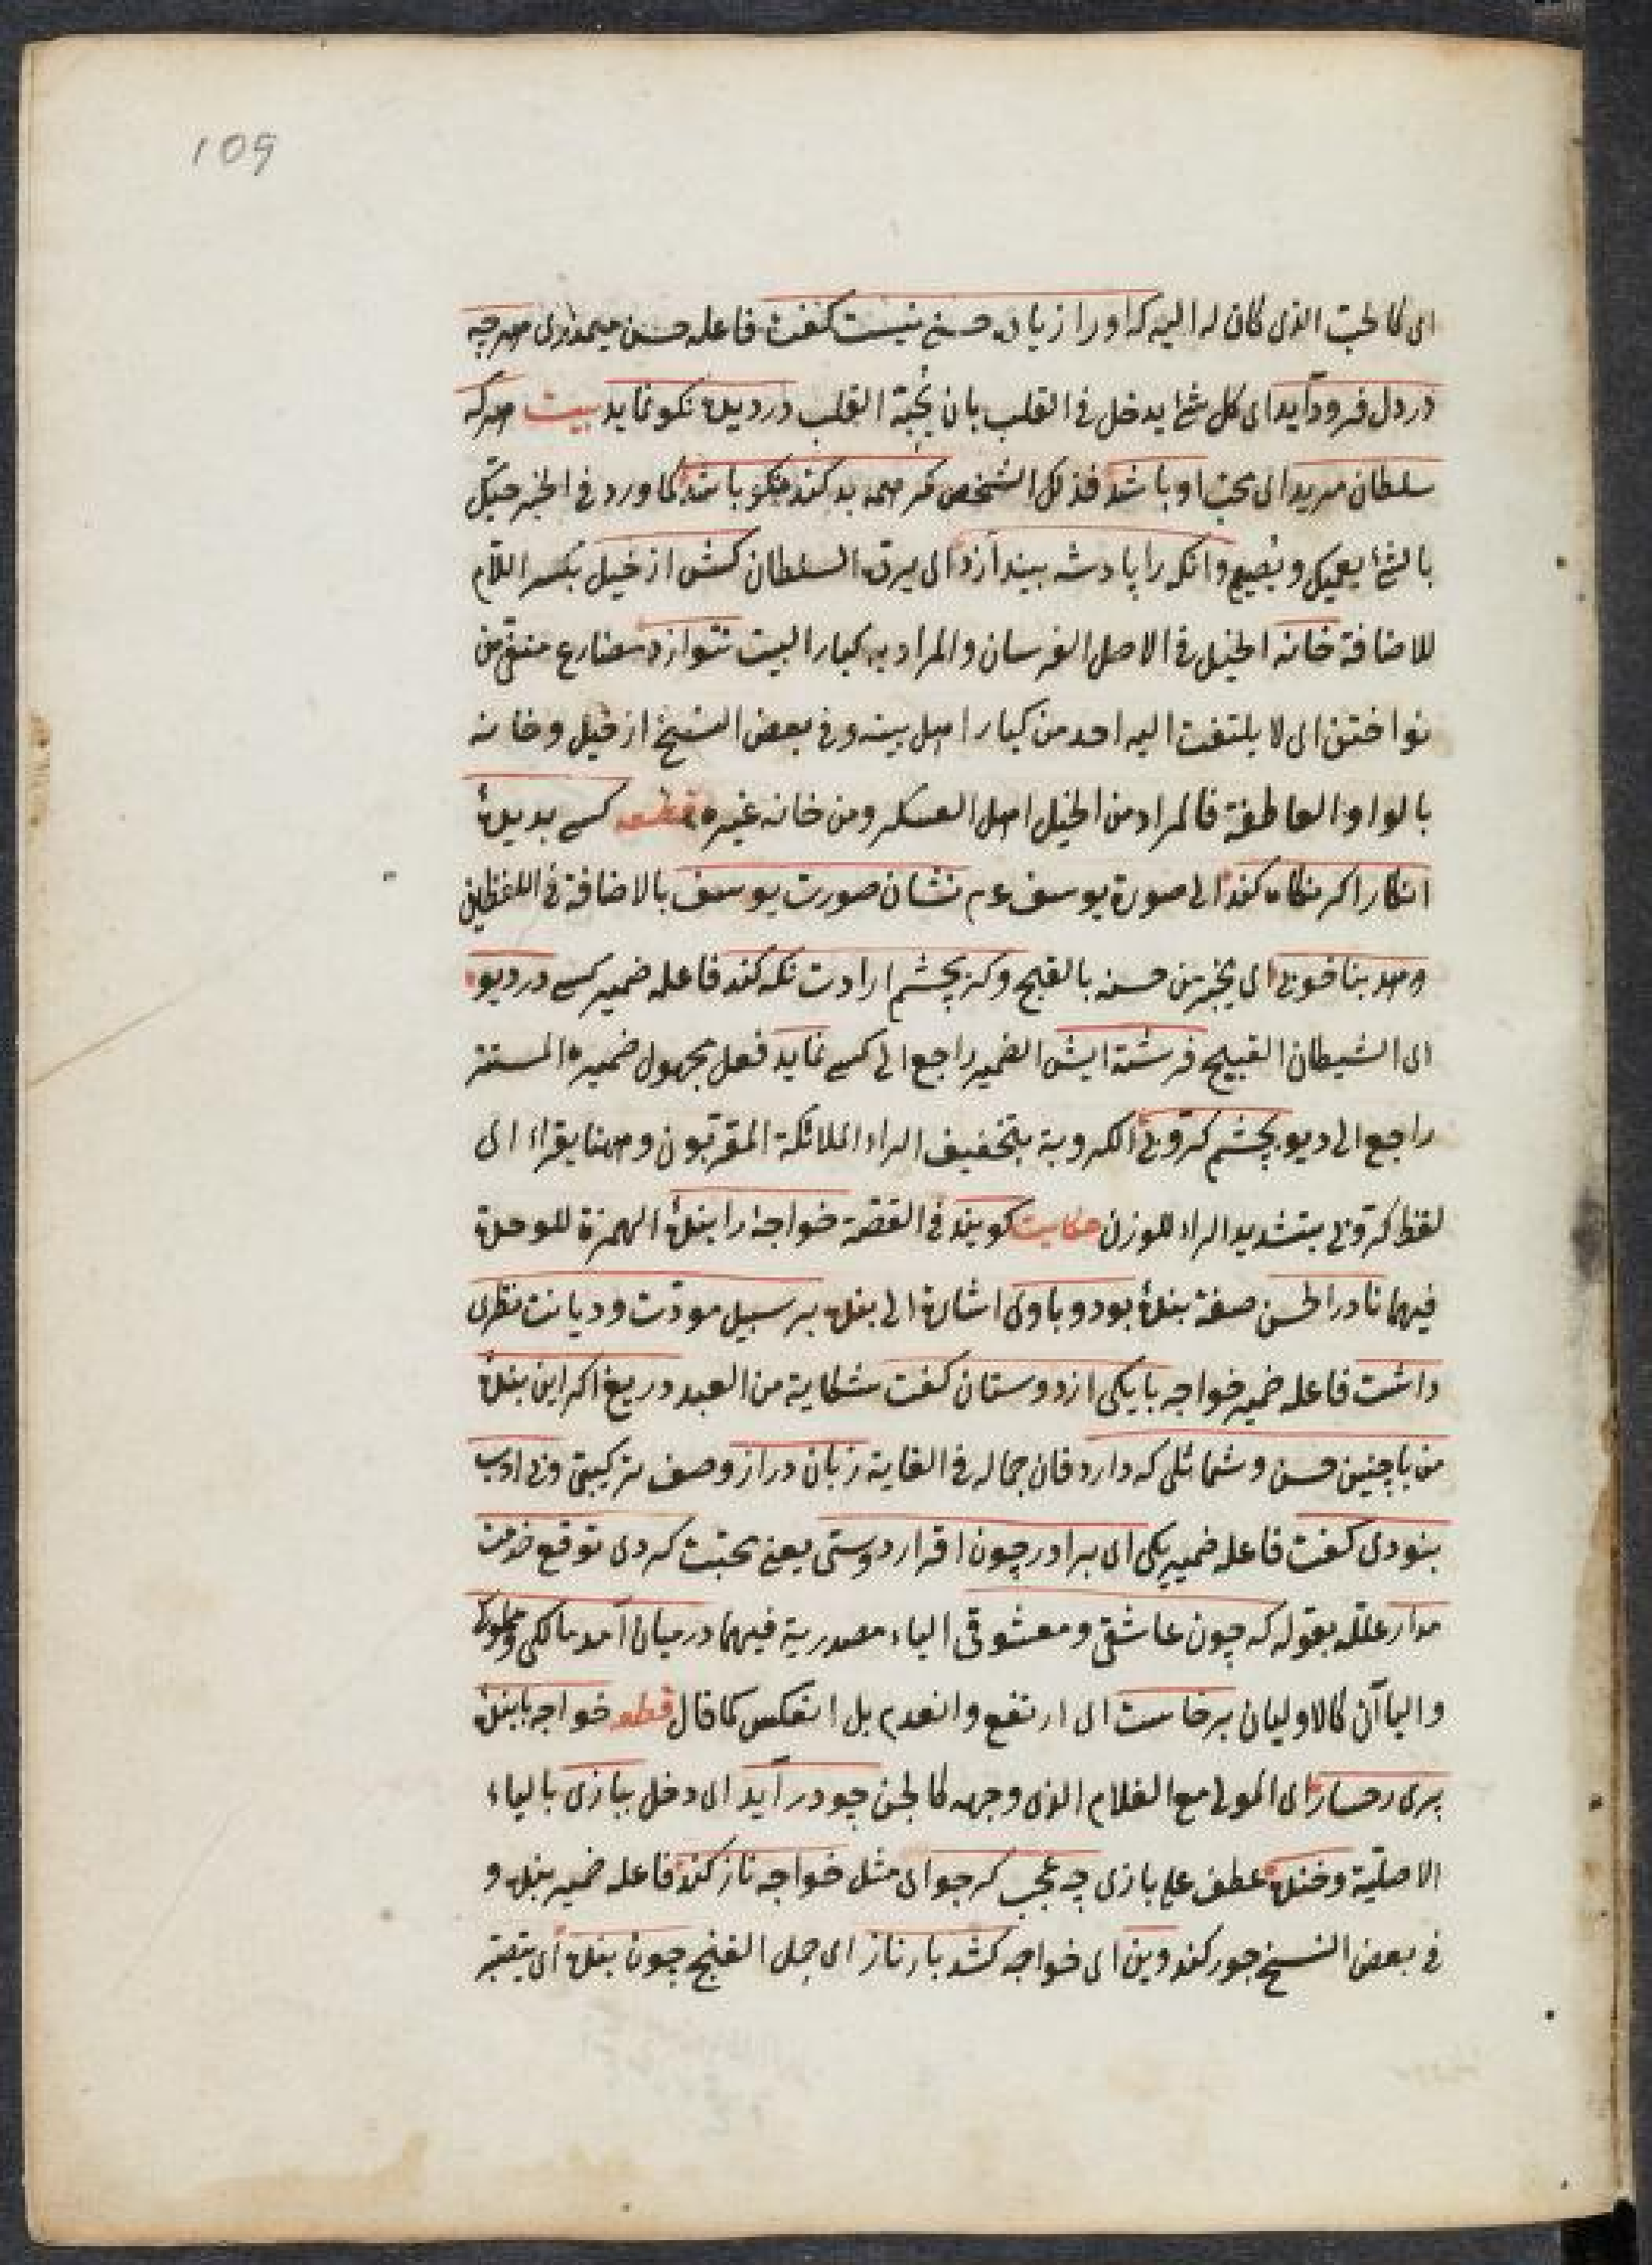 109
ای کالحب الذی کان له الیه که اورا زیاده حسنی نیست کفت فاعله حسن میمندی هرچه
در دل فرود آید ای کل شئ یدخل فی القلب بان یحبه القلب در دیده نکو نماید بیت هرکه
سلطان مرید ای محب او باشد فذلک الشخص کر همه بد کند نکو باشد کما ورد فی الخبر حبک
بالشئ یعمیک ویصم وانکه را پادشه بیندازد ای یرق السلطان کسش از خیل بکسر اللام
للاضافة خانه الخیل فی الاصل الفرسان والمراد به کبار البیت ننوازد مضارع منفی من
نواختن ای لا یلتفت الیه احد من کبار اهل بیته وفی بعض النسخ از خیل و خانه
بالواو العاطفة فالمراد من الخیل اهل العسکر ومن خانه غیره قطعه کسی بدیدهٔ
انکار اکر نکاه کند الی صورة یوسف عم نشان صورت یوسف بالاضافة فی اللفظین
دهد بناخوبی ای یخبر من حسنه بالقبح وکر بچشم ارادت نکه کند فاعله ضمیر کسی در دیو
ای الشیطان القبیح فرشته ایش الضمیر راجع الی کسی نماید فعل مجهول ضمیره المستتر
راجع الی دیو بچشم کروبی الکروبیة بتخفیف الراء الملائکة المقربون وههنا یقراء ای
لفظ کروبی بتشدید الراء للوزن حکایت کویند فی القصة خواجهٔ را بندهٔ الهمزة للوحدة
فیهما نادر الحسن صفة بندهٔ بود و باوی اشارة الی بنده بر سبیل مودت و دیانت نظری
داشت فاعله ضمیر خواجه بایکی از دوستان کفت شکایة من العبد دریغ اکر این بندهٔ
من باچنین حسن و شمائلی که دارد فان جماله فی الغایة زبان دراز وصف ترکیبی و بی ادب
بنودی کفت فاعله ضمیر یکی ای برادر چون اقرار دوستی یعنی محبت کردی توقع خدمت
مدار علله بقوله که چون عاشقی و معشوقی الیاء مصدریة فیهما در میان آمد مالکی و مملوکی
والیاآن کالاولیان برخاست ای ارتفع وانعدم بل انعکس کما قال قطعه خواجه بابندهٔ
پری رخسار ای المولی مع الغلام الذی وجهه کالجن چو درآید ای دخل ببازی بالیاء
الاصلیة وخنده عطف علی بازی چه عجب کر چو ای مثل خواجه ناز کند فاعله ضمیر بنده و
فی بعض النسخ جور کند وین ای خواجه کشد بار ناز ای حمل الغنج چون بنده ای یتصبر